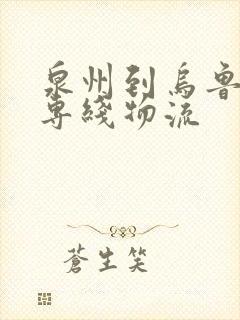 泉州到烏魯
專綫物流
蒼生笑